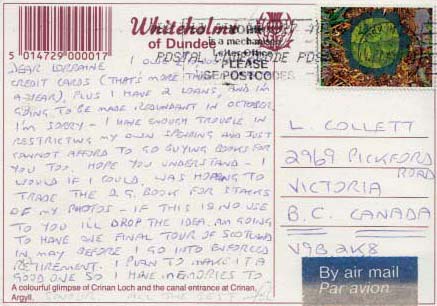 5 014729 000017
Whiteholme
of Dundee
is a mechanised
Letter Office
POSTAL
CODE POSTAL
PLEASE
USE POSTCODES
DEAR LORRAINE I OWE
CREDIT CARDS (THAT'S MORE THAN
A YEAR), PLUS I HAVE 2 LOANS, AND I'M
GOING TO BE MADE REDUNDANT IN OCTOBER
I'M SORRY - I HAVE ENOUGH TROUBLE IN
RESTRICTING MY OWN SPENDING AND JUST
CANNOT AFFORD TO GO BUYING BOOKS FOR
YOU TOO. HOPE YOU UNDERSTAND - I
WOULD IF I COULD. WAS HOPING TO
TRADE THE D.G. BOOK FOR STACKS
OF MY PHOTOS - IF THIS IS NO USE
TO YOU I'LL DROP THE IDEA. AM GOING
TO HAVE ONE FINAL TOUR OF SCOTLAND
IN MAY BEFORE I GO INTO ENFORCED
RETIREMENT. I PLAN TO MAKE IT A
GOOD ONE SO I HAVE MEMORIES TO
ALL THE BEST
A colourful glimpse of Crinan Loch and the canal entrance at Crinan,
Argyll.
L. COLLETT
2969 PICKFORD
ROAD
VICTORIA
B.C. CANADA
V9B 2K8
By air mail
Par avion